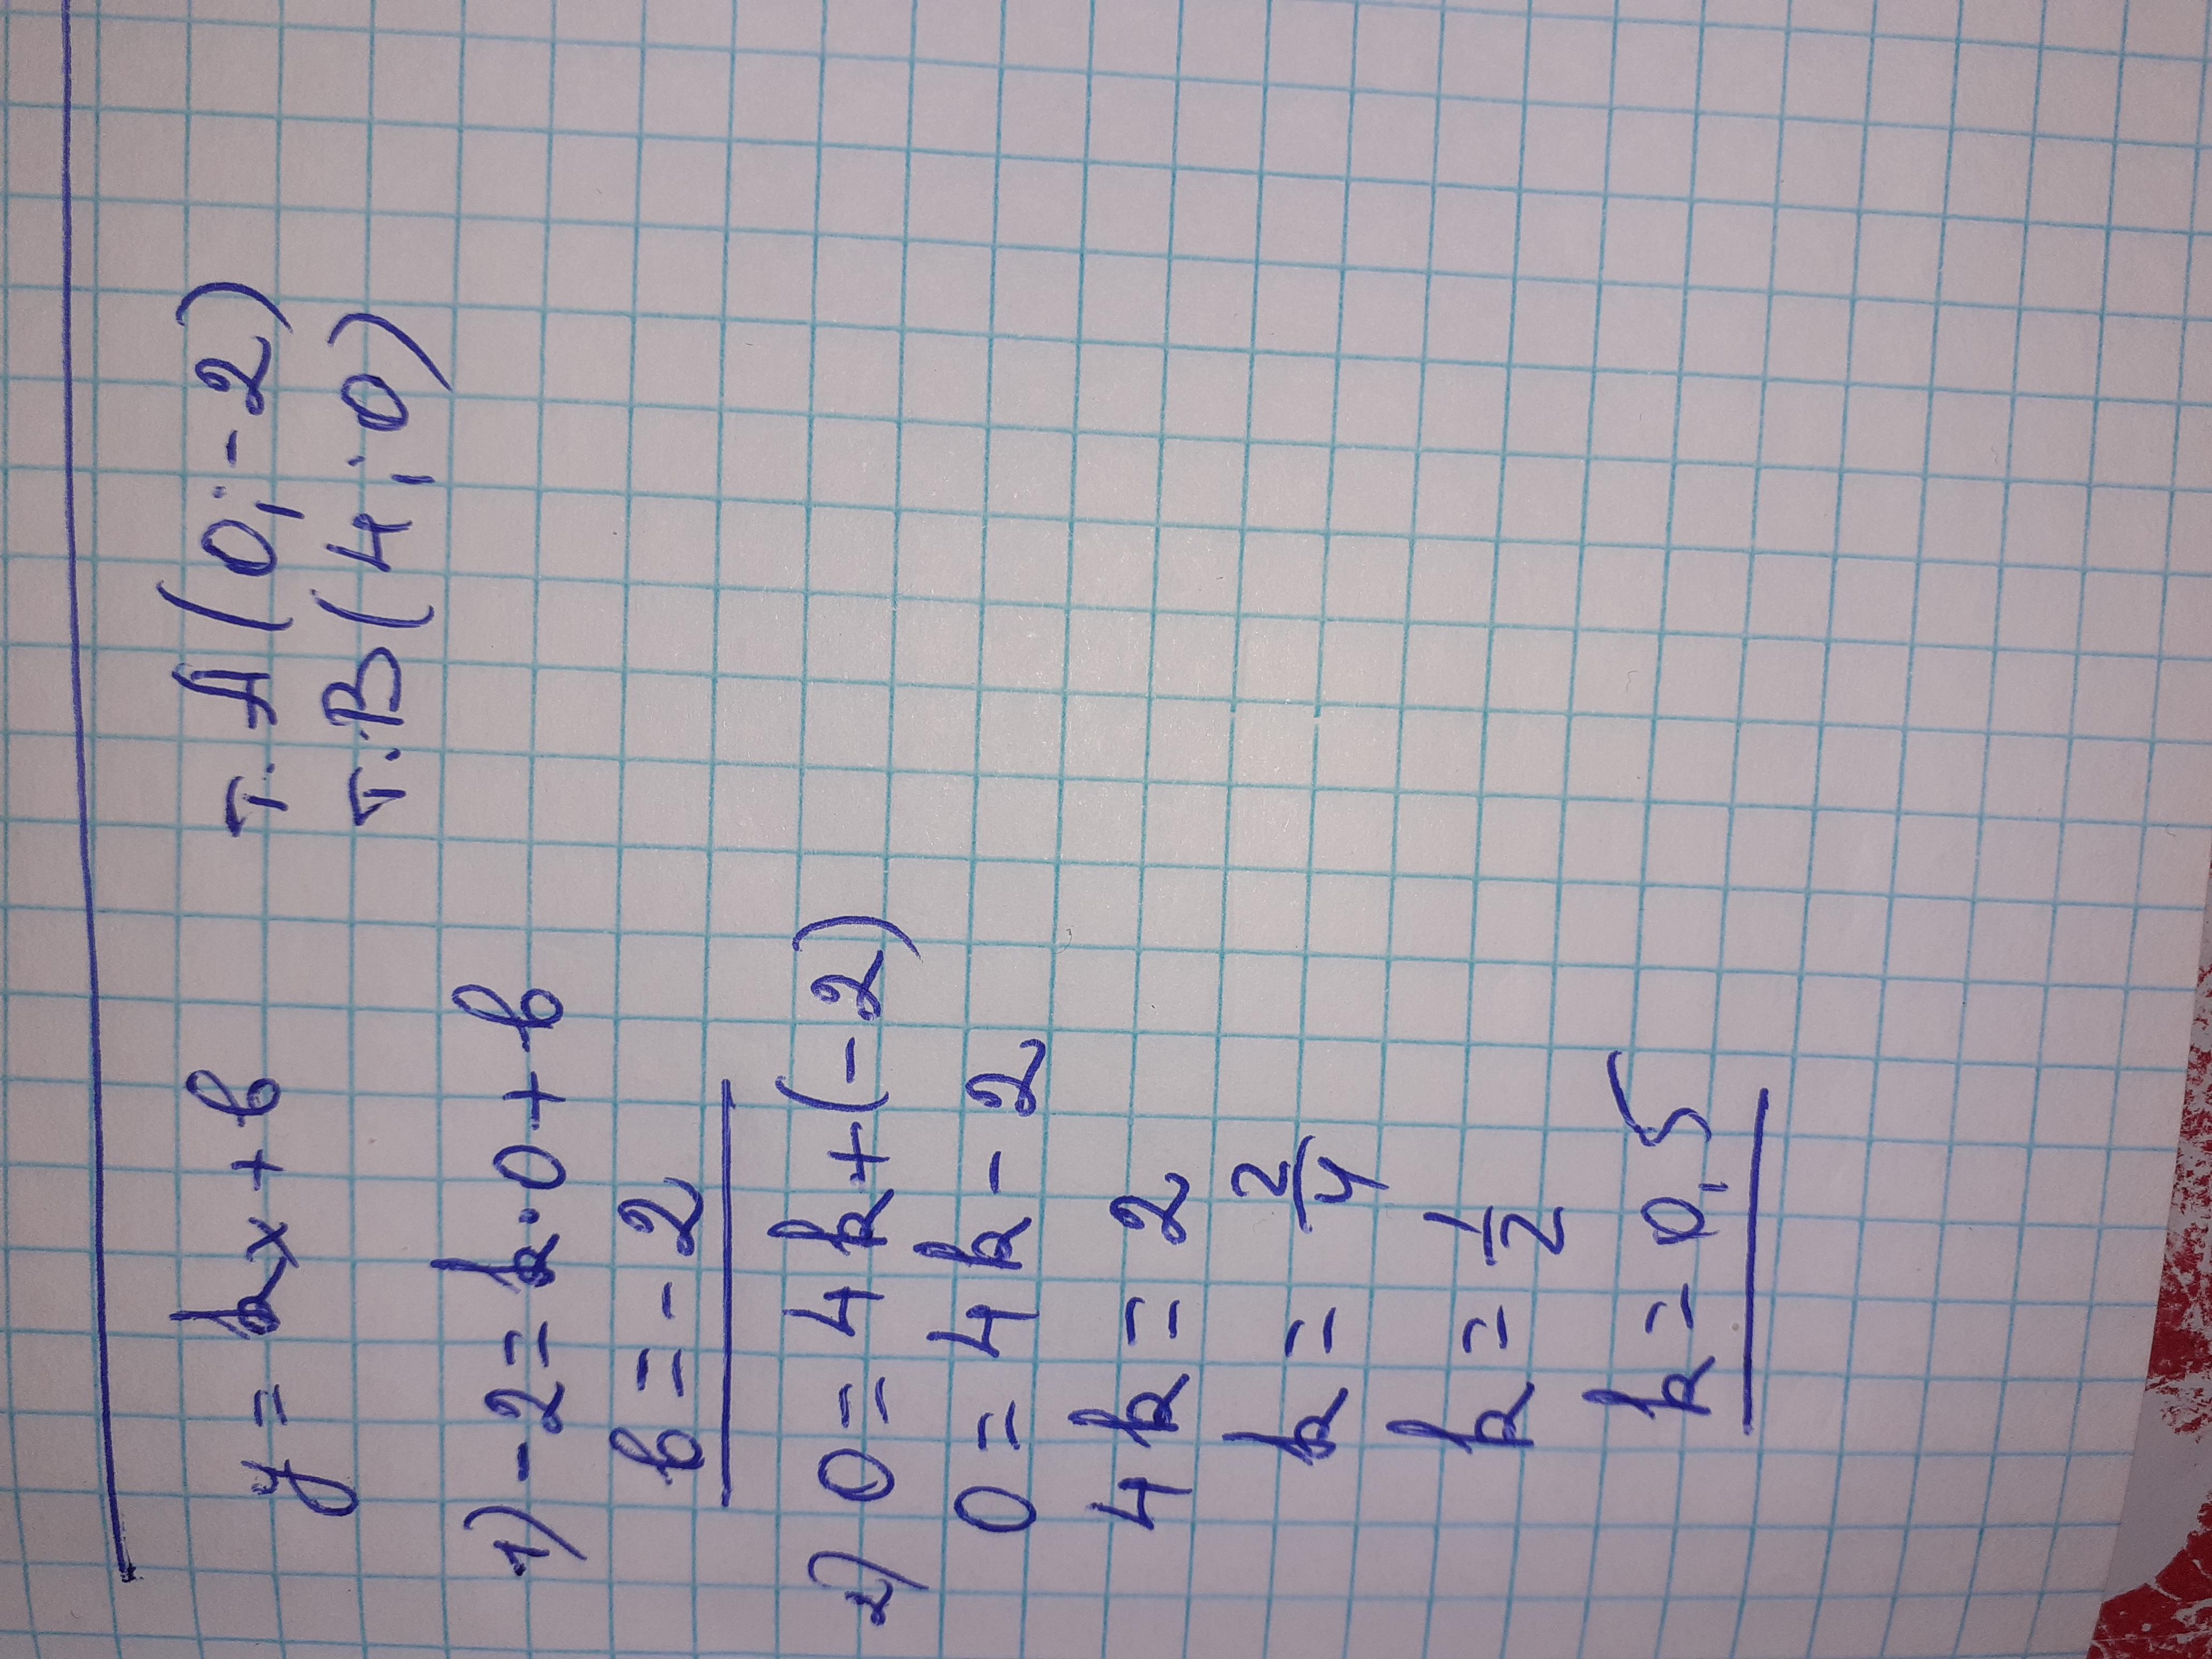 y = kx + b т. A (0; -2)
т. B (4; 0)
1) -2 = k · 0 + b
b = -2
2) 0 = 4k + (-2)
0 = 4k - 2
4k = 2
k = 2/4
k = 1/2
k = 0,5